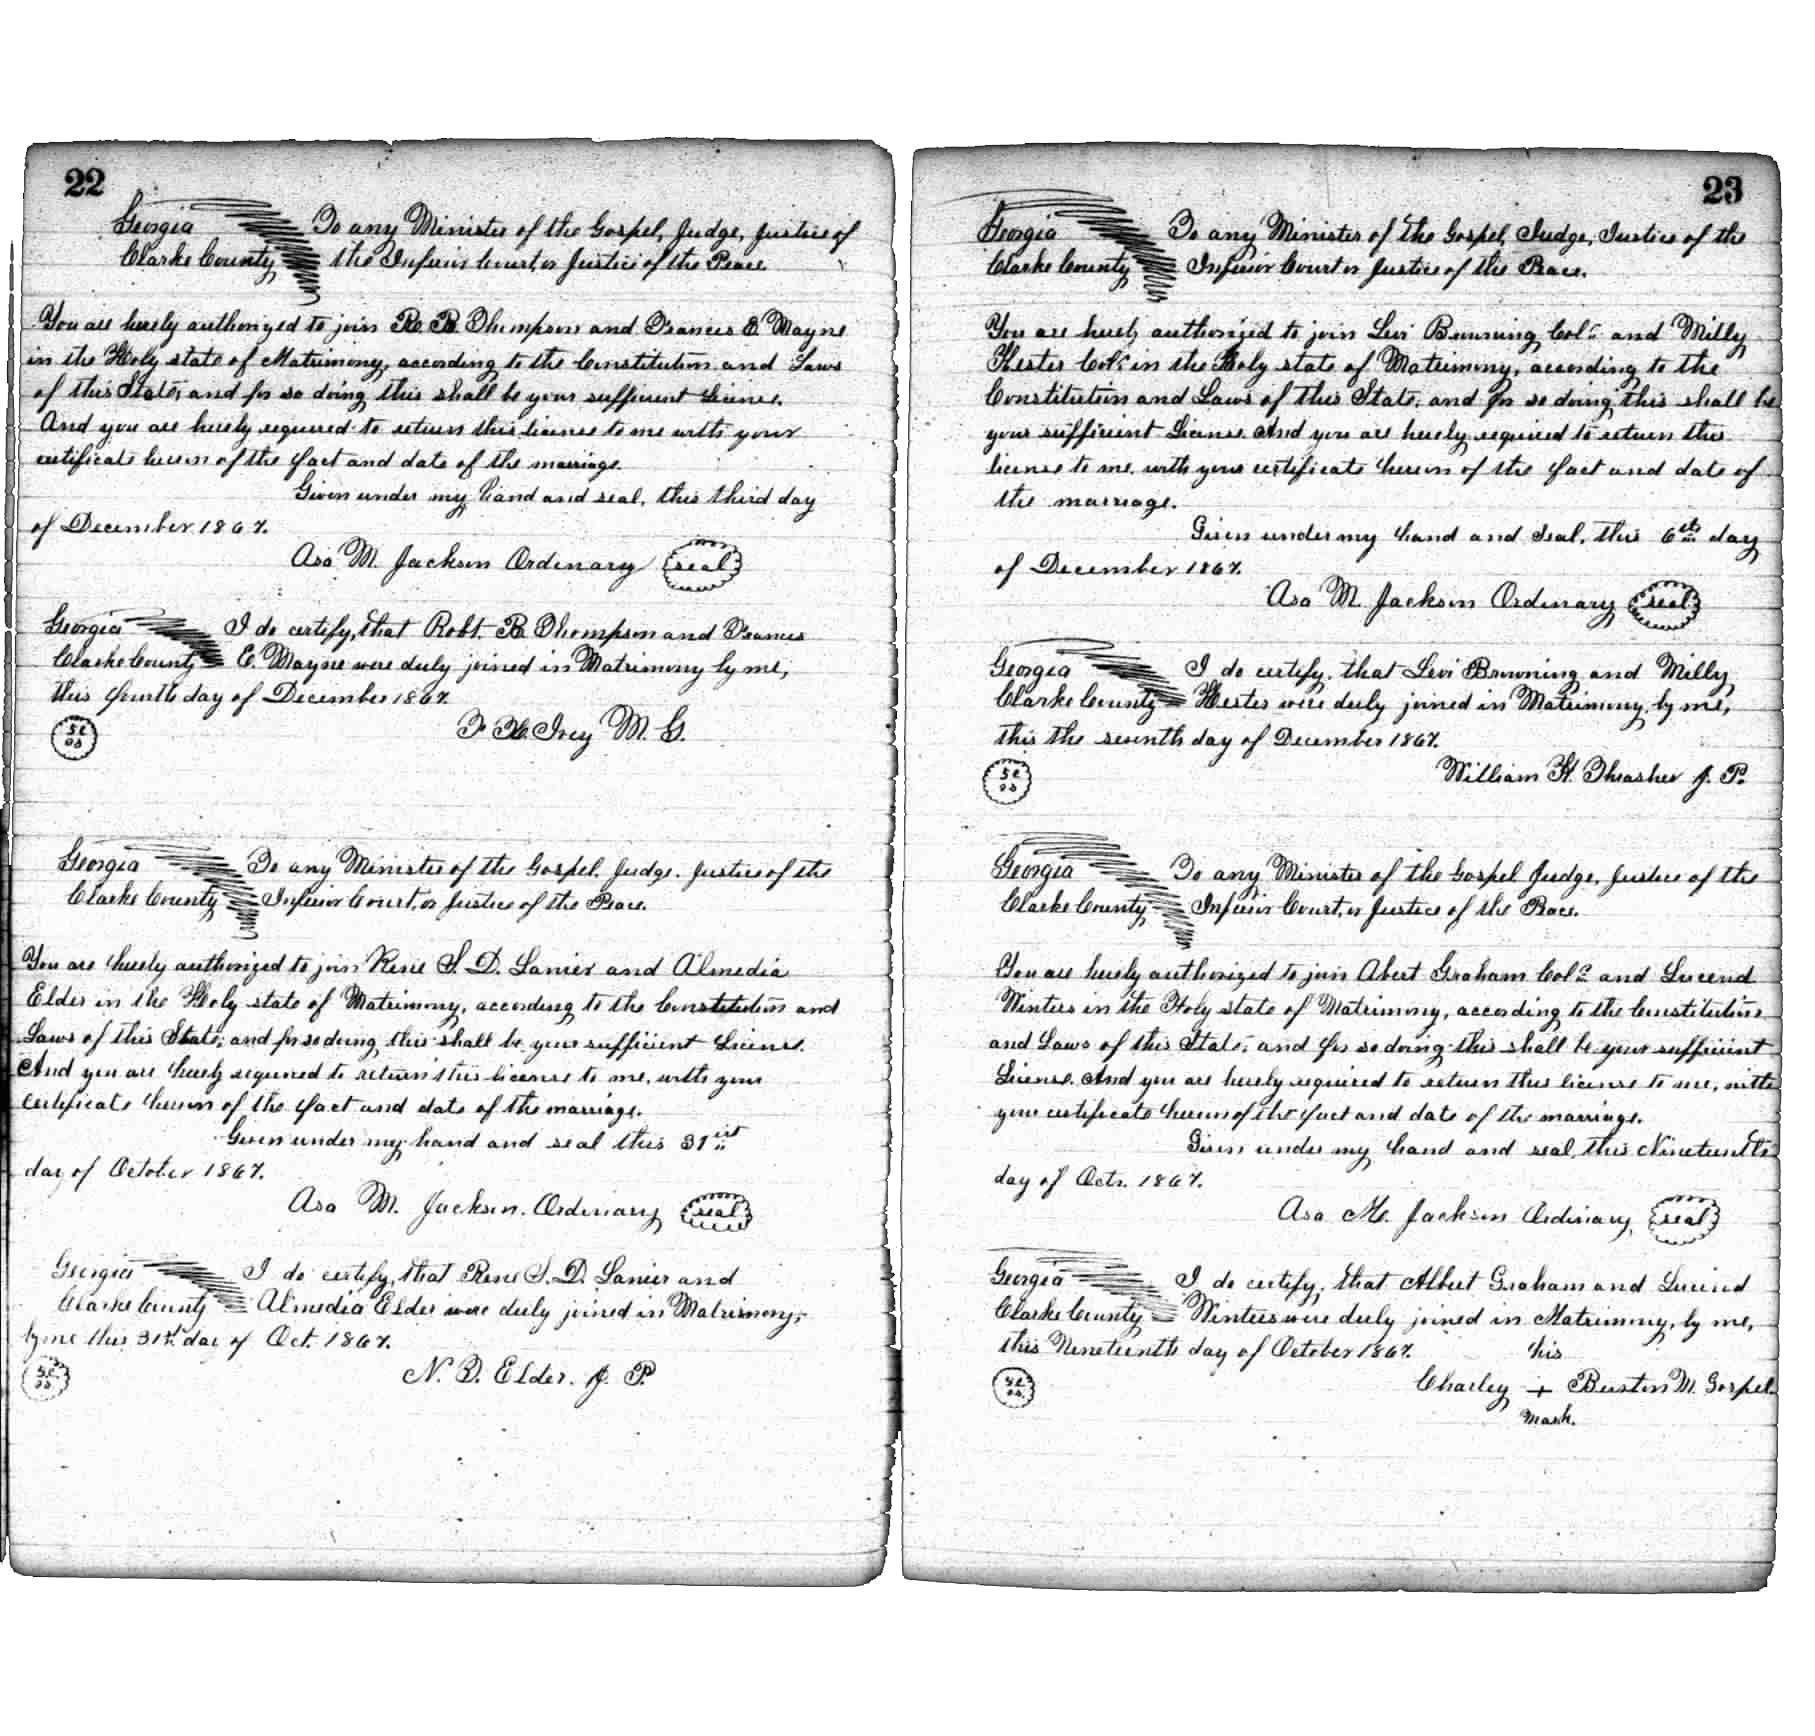 22
Georgia To any Minister of the Gospel, Judge, Justice of
Clarke County the Inferior Court, or Justice of the Peace
You are hereby authorized to join R. B. Thompson and Frances E. Mayne
in the Holy state of Matrimony, according to the Constitution and Laws
of this State, and for so doing this shall be your sufficient License.
And you are hereby required to return this license to me with your
certificate hereon of the fact and date of the marriage.
Given under my hand and seal, this third day
of December 1867.
Asa M. Jackson Ordinary seal
Georgia I do certify, that Robt. B. Thompson and Frances
Clarke County E. Mayne were duly joined in Matrimony by me,
this fourth day of December 1867.
50 F. H. Ivey M. G.
Georgia To any Minister of the Gospel, Judge, Justice of the
Clarke County Inferior Court, or Justice of the Peace.
You are hereby authorized to join Rene S. D. Lanier and Almedia
Elder in the Holy state of Matrimony, according to the Constitution and
Laws of this State, and for so doing this shall be your sufficient License.
And you are hereby required to return this license to me, with your
certificate hereon of the fact and date of the marriage.
Given under my hand and seal this 31st
day of October 1867.
Asa M. Jackson. Ordinary seal
Georgia I do certify, that Rene S. D. Lanier and
Clarke County Almedia Elder were duly joined in Matrimony,
by me this 31st day of Oct. 1867.
N. D. Elder. J. P.
23
Georgia To any Minister of the Gospel, Judge, Justice of the
Clarke County Inferior Court or Justice of the Peace.
You are hereby authorized to join Levi Browning Cold and Milly
Hester Cold in the Holy state of Matrimony, according to the
Constitution and Laws of this State, and for so doing this shall be
your sufficient License. And you are hereby required to return this
license to me, with your certificate hereon of the fact and date of
the marriage.
Given under my hand and seal, this 6th day
of December 1867.
Asa M. Jackson Ordinary seal
Georgia I do certify, that Levi Browning and Milly
Clarke County Hester were duly joined in Matrimony, by me,
this the seventh day of December 1867.
William H. Thrasher J. P.
Georgia To any Minister of the Gospel Judge, Justice of the
Clarke County Inferior Court, or Justice of the Peace.
You are hereby authorized to join Abert Graham Cold and Lucend
Winters in the Holy state of Matrimony, according to the Constitution
and Laws of this State, and for so doing this shall be your sufficient
License. And you are hereby required to return this license to me, with
your certificate hereon of the fact and date of the marriage.
Given under my hand and seal, this Nineteenth
day of Octr. 1867.
Asa M. Jackson Ordinary seal
Georgia I do certify, that Albert Graham and Lucend
Clarke County Winters were duly joined in Matrimony, by me,
this Nineteenth day of October 1867.
his
Charley + Burton M. Gospel.
mark.